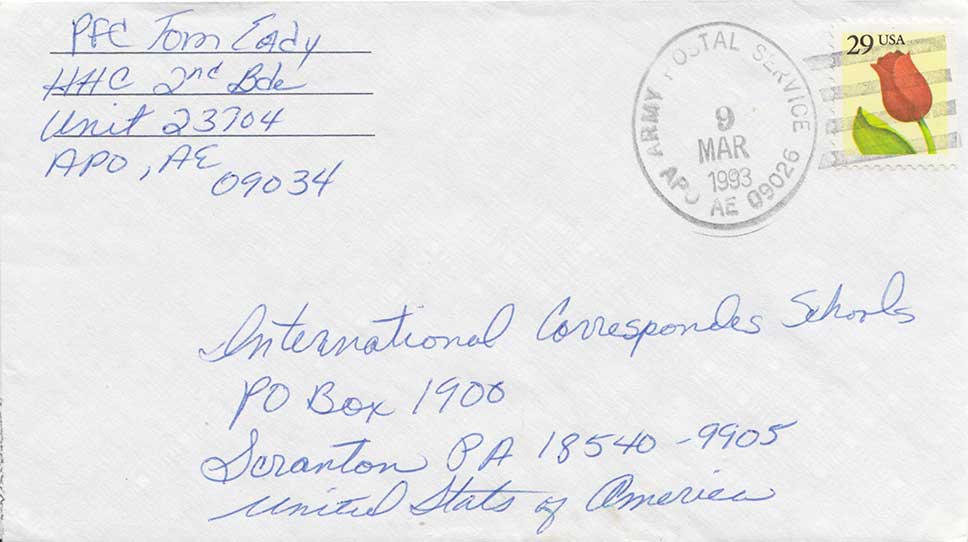 PFC Tom Eady
HHC 2nd Bde
Unit 23704
APO, AE
09034
ARMY POSTAL SERVICE
9
MAR
1993
APO AE 09026
29 USA
International Correspondes Schools
PO Box 1900
Scranton PA 18540-9905
United Stats of America